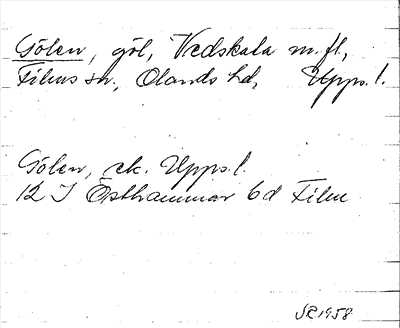 Gölen, göl, Vedskala m.fl.,
Films sn., Olands hd, Upps. l.
Gölen, ek. Upps. l.
12 I Östhammar 6d Film
SE 1958